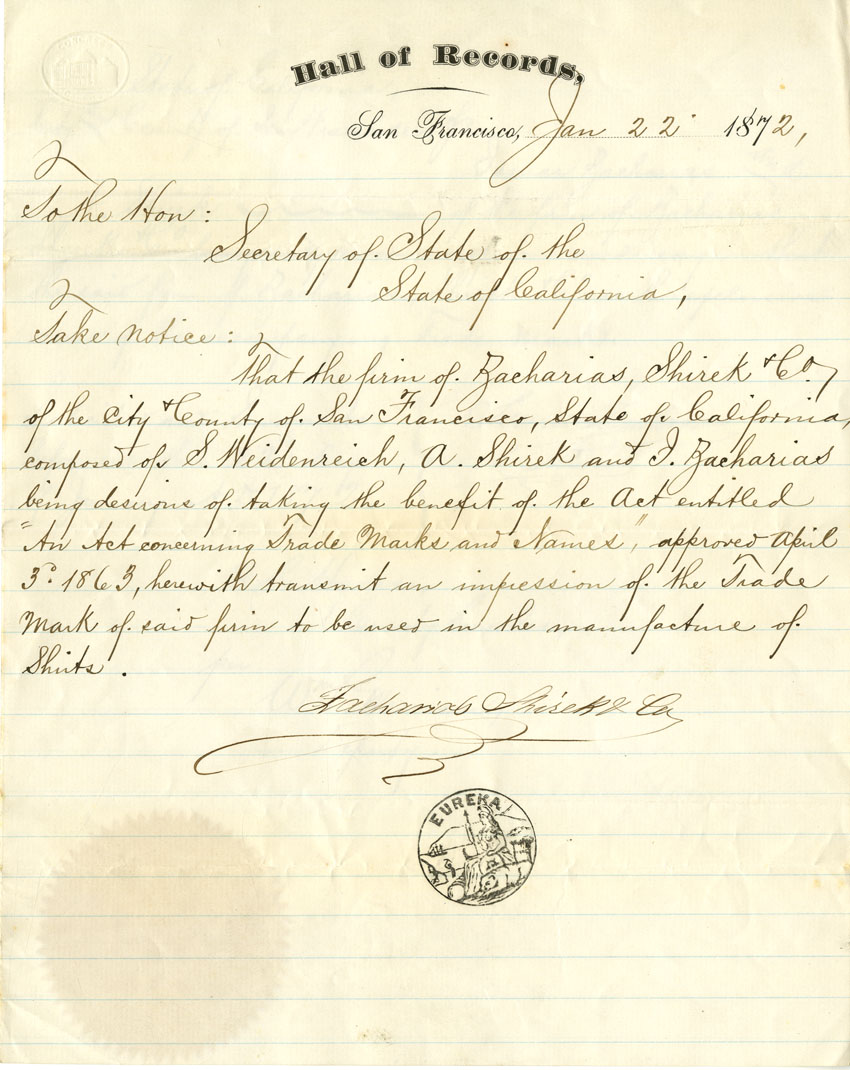 Hall of Records,
San Francisco, Jan 22 1872,
To the Hon:
Secretary of State of the
State of California,
Take notice:
That the firm of Zacharias, Shirek & Co.,
of the City & County of San Francisco, State of California,
composed of S. Weidenreich, A. Shirek and I. Zacharias
being desirous of taking the benefit of the Act entitled
"An Act concerning Trade Marks and Names", approved April
3d. 1863, herewith transmit an impression of the Trade
Mark of said firm to be used in the manufacture of
Shirts.
Zacharias Shirek & Co
EUREKA